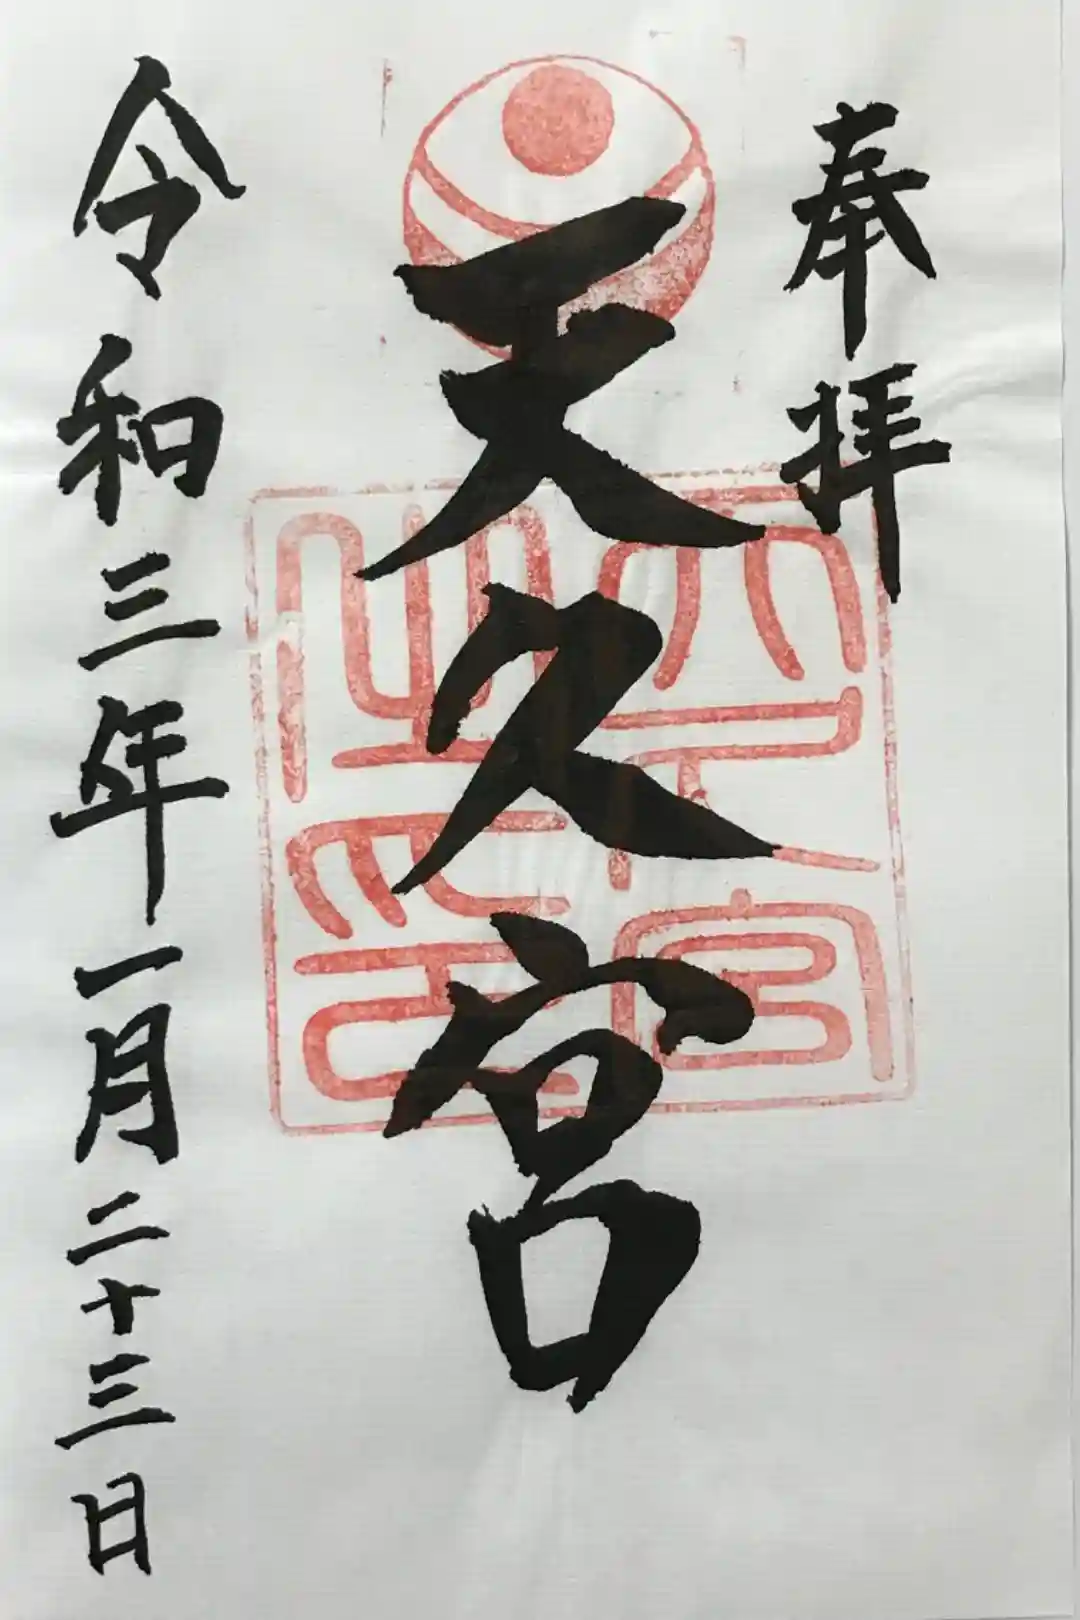 奉拝
天久宮
令和三年一月二十三日